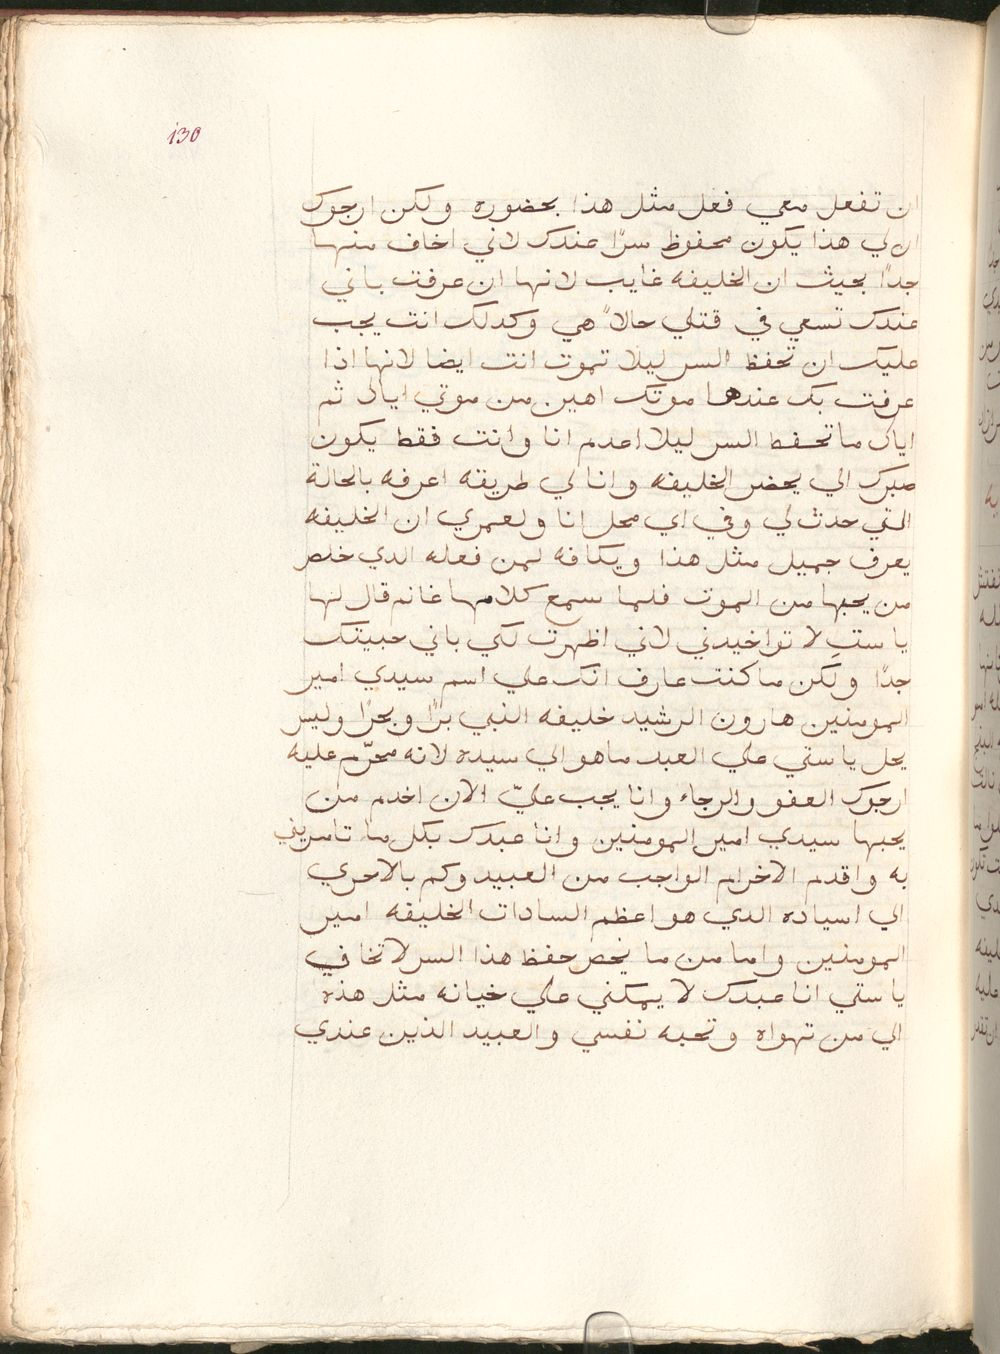 130
ان تفعل معي فعل مثل هذا بحضوره ولكن ارجوك
ان لي هذا يكون محفوظ سرًا عندك لاني اخاف منها
جدًا بحيث ان الخليفه غايب لانها ان عرفت باني
عندك تسعي في قتلي حالاً هي وكدلك انت يجب
عليك ان تحفظ السر ليلا تموت انت ايضا لانها اذا
عرفت بك عندها موتك اهين من موتي اياك ثم
اياك ما تحفظ السر ليلا اعدم انا وانت فقط يكون
صبرك الي يحضر الخليفه وانا لي طريقه اعرفه بالحالة
التي حدث لي وفي اي محل انا ولعمري ان الخليفه
يعرف جميل مثل هذا ويكافه لمن فعله الدي خلص
من يحبها من الموت فلما سمع كلامها غانم قال لها
يا ستِ لا تواخيدني لاني اظهرت لكي باني حبيتك
جدًا ولكن ما كنت عارف انك علي اسم سيدي امير
المومنين هارون الرشيد خليفه النبي برًا وبحرًا وليس
يحل يا ستي علي العبد ما هو الي سيده لانه محرّم عليه
ارجوك العفو والرجاء وانا يجب عليّ الان اخدم من
يحبها سيدي امير المومنين وانا عبدك بكل ما تامريني
به واقدم الاخرام الواجب من العبيد وكم بالاحري
الي اسياده الدي هو اعظم السادات الخليفه امير
المومنين واما من ما يخص حفظ هذا السر لا تخافي
يا ستي انا عبدك لا يمكني علي خيانه مثل هذه
الي من تهواه وتحبه نفسي والعبيد الذين عندي